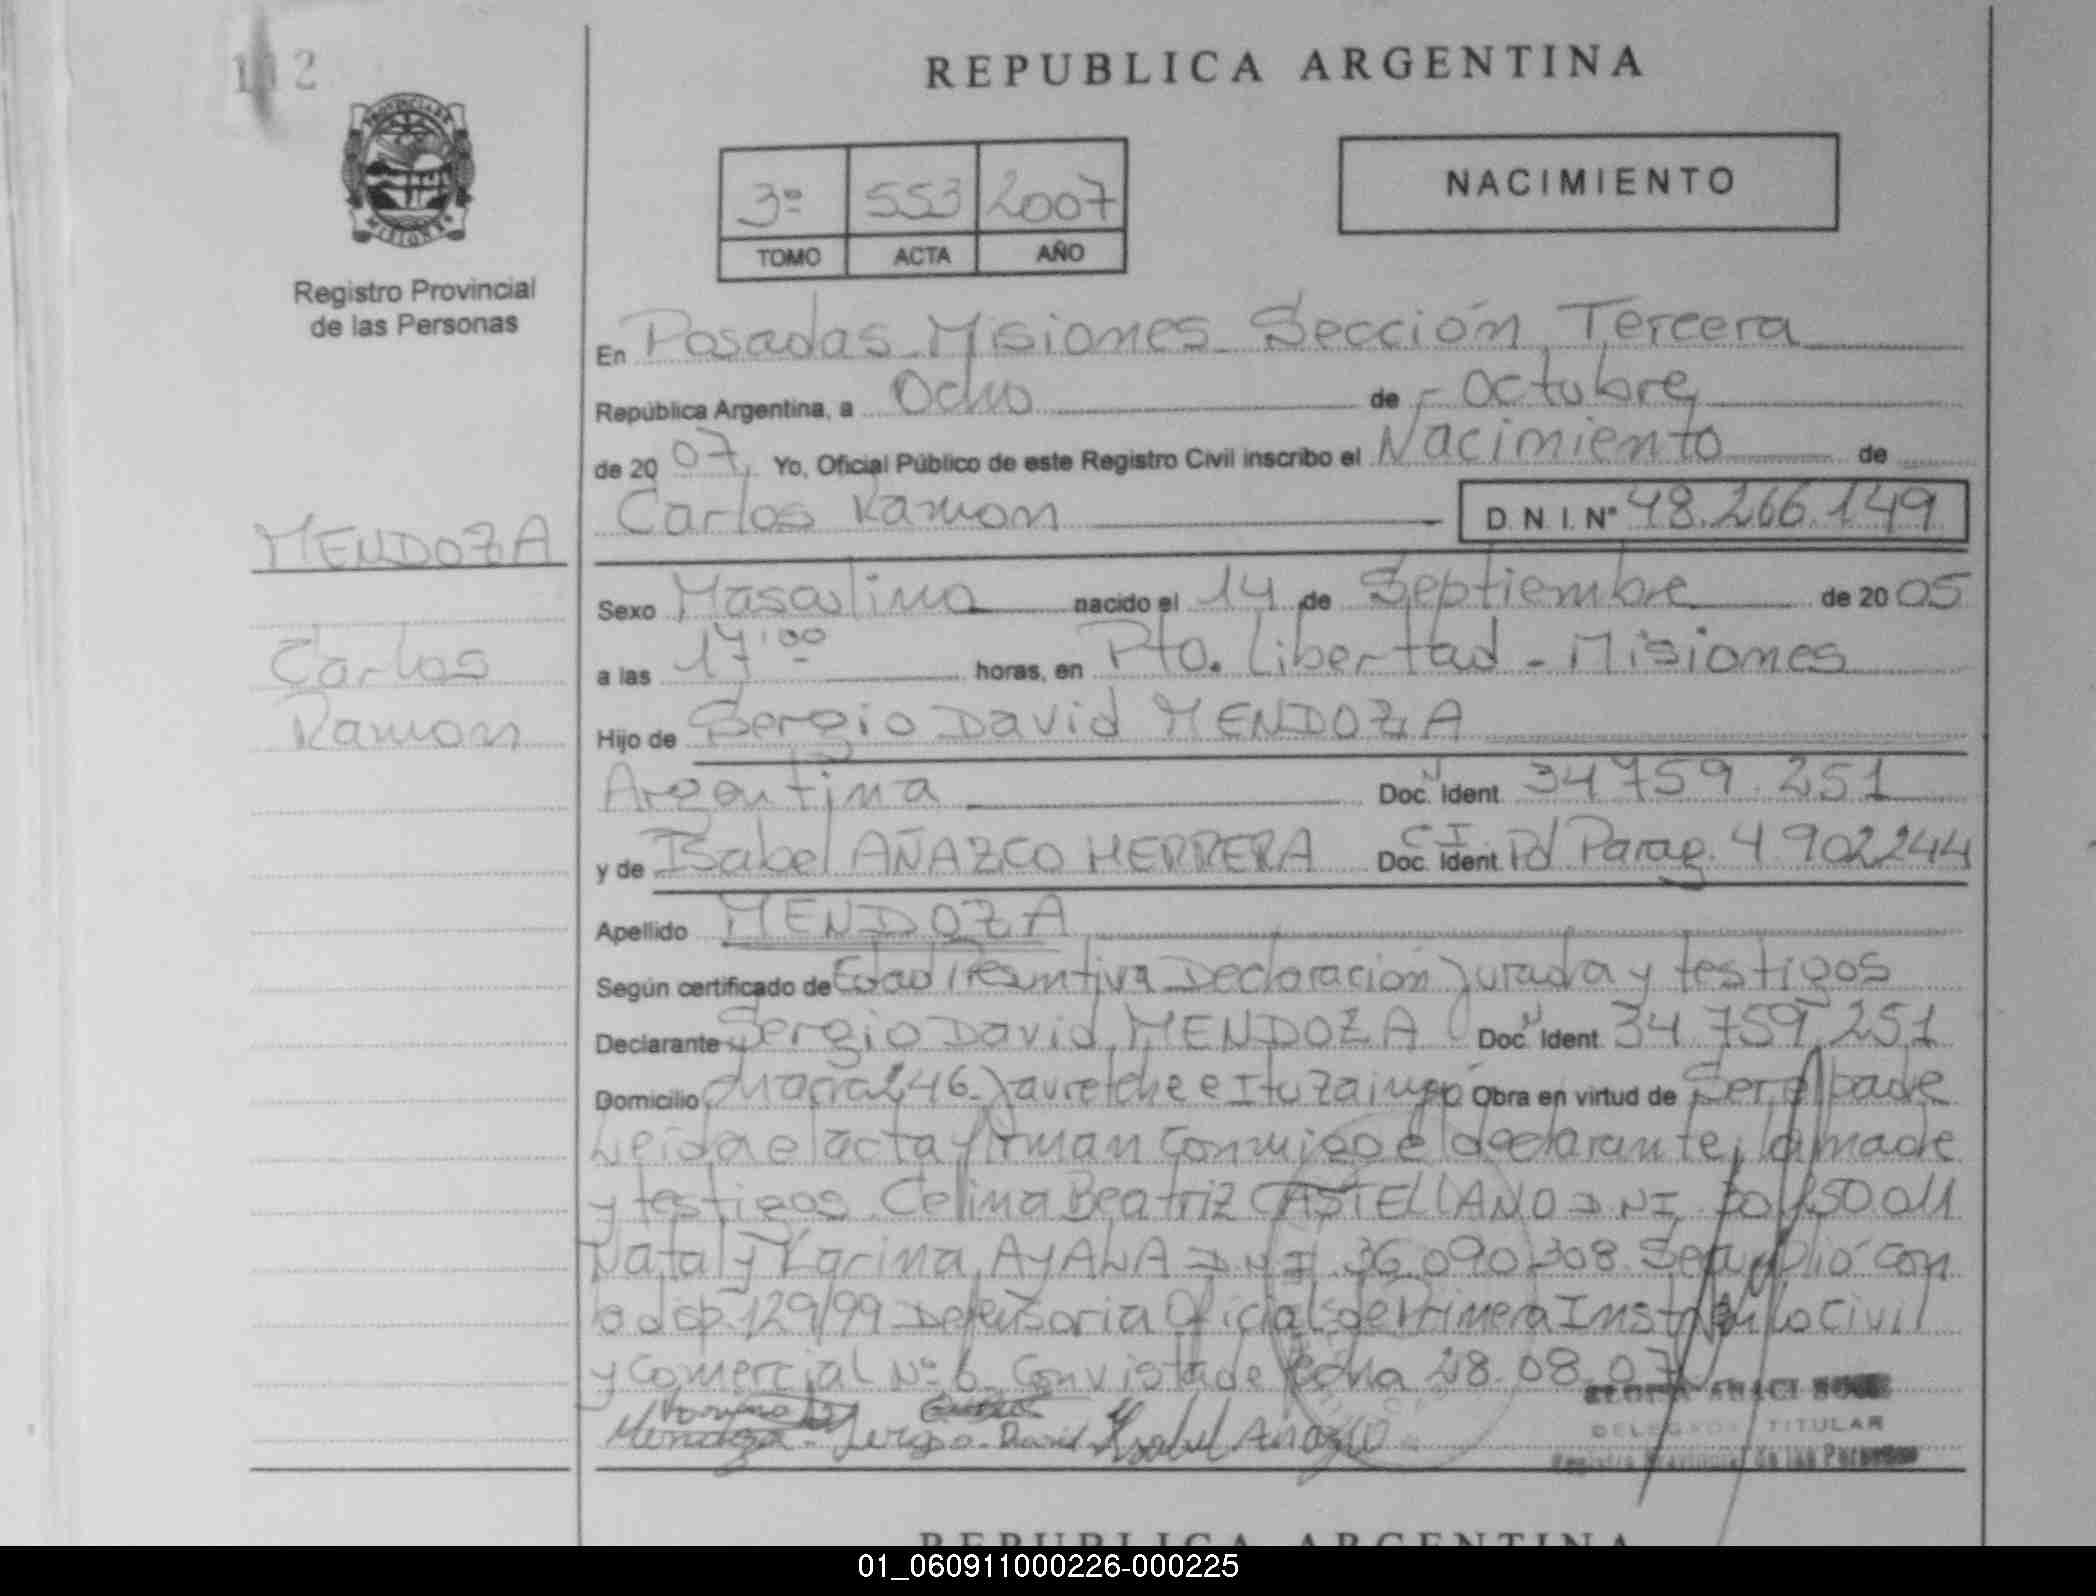 112
REPUBLICA ARGENTINA
PROVINCIA DE
MISIONES
Registro Provincial
de las Personas
3º 553 2007
TOMO ACTA AÑO
NACIMIENTO
En Posadas Misiones Sección Tercera
República Argentina, a Ocho de Octubre
de 20 07, Yo, Oficial Público de este Registro Civil inscribo el Nacimiento de
Carlos Ramon D.N.I. Nº 48.266.149
MENDOZA
Carlos
Ramon
Sexo Masculino nacido el 14 de Septiembre de 20 05
a las 17:00 horas, en Pto. Libertad - Misiones
Hijo de Sergio David MENDOZA
Argentina Doc. Ident. 34 759.251
y de Isabel AÑAZCO HERRERA Doc. Ident. CI Pol Parag. 4902244
Apellido MENDOZA
Según certificado de Edad Presuntiva Declaración Jurada y testigos
Declarante Sergio David MENDOZA Doc. Ident. 34.759.251
Domicilio Chacra 246. Jauretche e Ituzaingó Obra en virtud de Ser el padre
Leida el acta firman conmigo el declarante, la madre
y testigos Celina Beatriz CASTELLANO DNI 30 150 011
Nataly Karina AYALA DNI 36.090.308 Se cumplió con
la disp 129/99 Defensoria Oficial de Primera Inst en lo Civil
y Comercial Nº 6 Con vista de fecha 28.08.07
Mendoza Sergio David Isabel Añazco
DELEGADO TITULAR
Registro Provincial de las Personas
REPUBLICA ARGENTINA
01_060911000226-000225